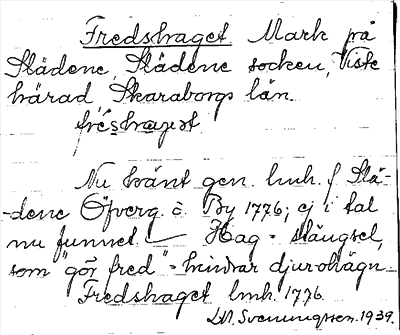 Fredshaget. Mark på
Slädene, Slädene socken, Viste
härad Skaraborgs län.
Nu känt gen. lmh. f Slä-
-dene Öfverg. o. By 1776; ej i tal
nu funnet. — Hag = stängsel,
som "gör fred" = hindrar djurohägn.
Fredshaget lmh. 1776.
Svenungsson. 1939.